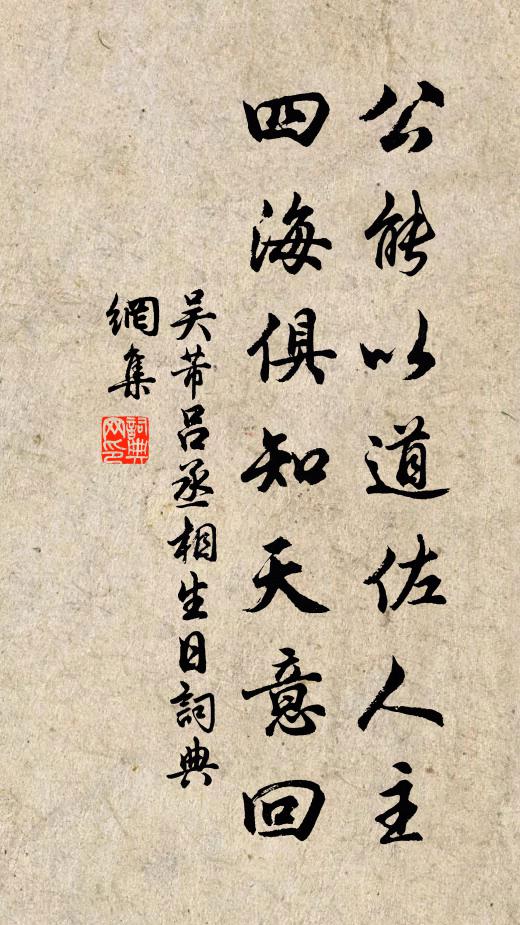 公能以道佐人主
四海俱知天意回
吴芾吕丞相生日詞典
網集
詞典
网印